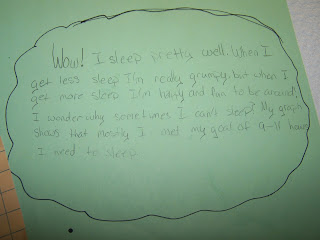 Wow! I sleep pretty well. When I
get less sleep I'm really grumpy, but when I
get more sleep I'm and fun to be around.
I wonder why sometimes I can't sleep? My graph
shows that mostly I my goal of 9-11 hours
I need to sleep.